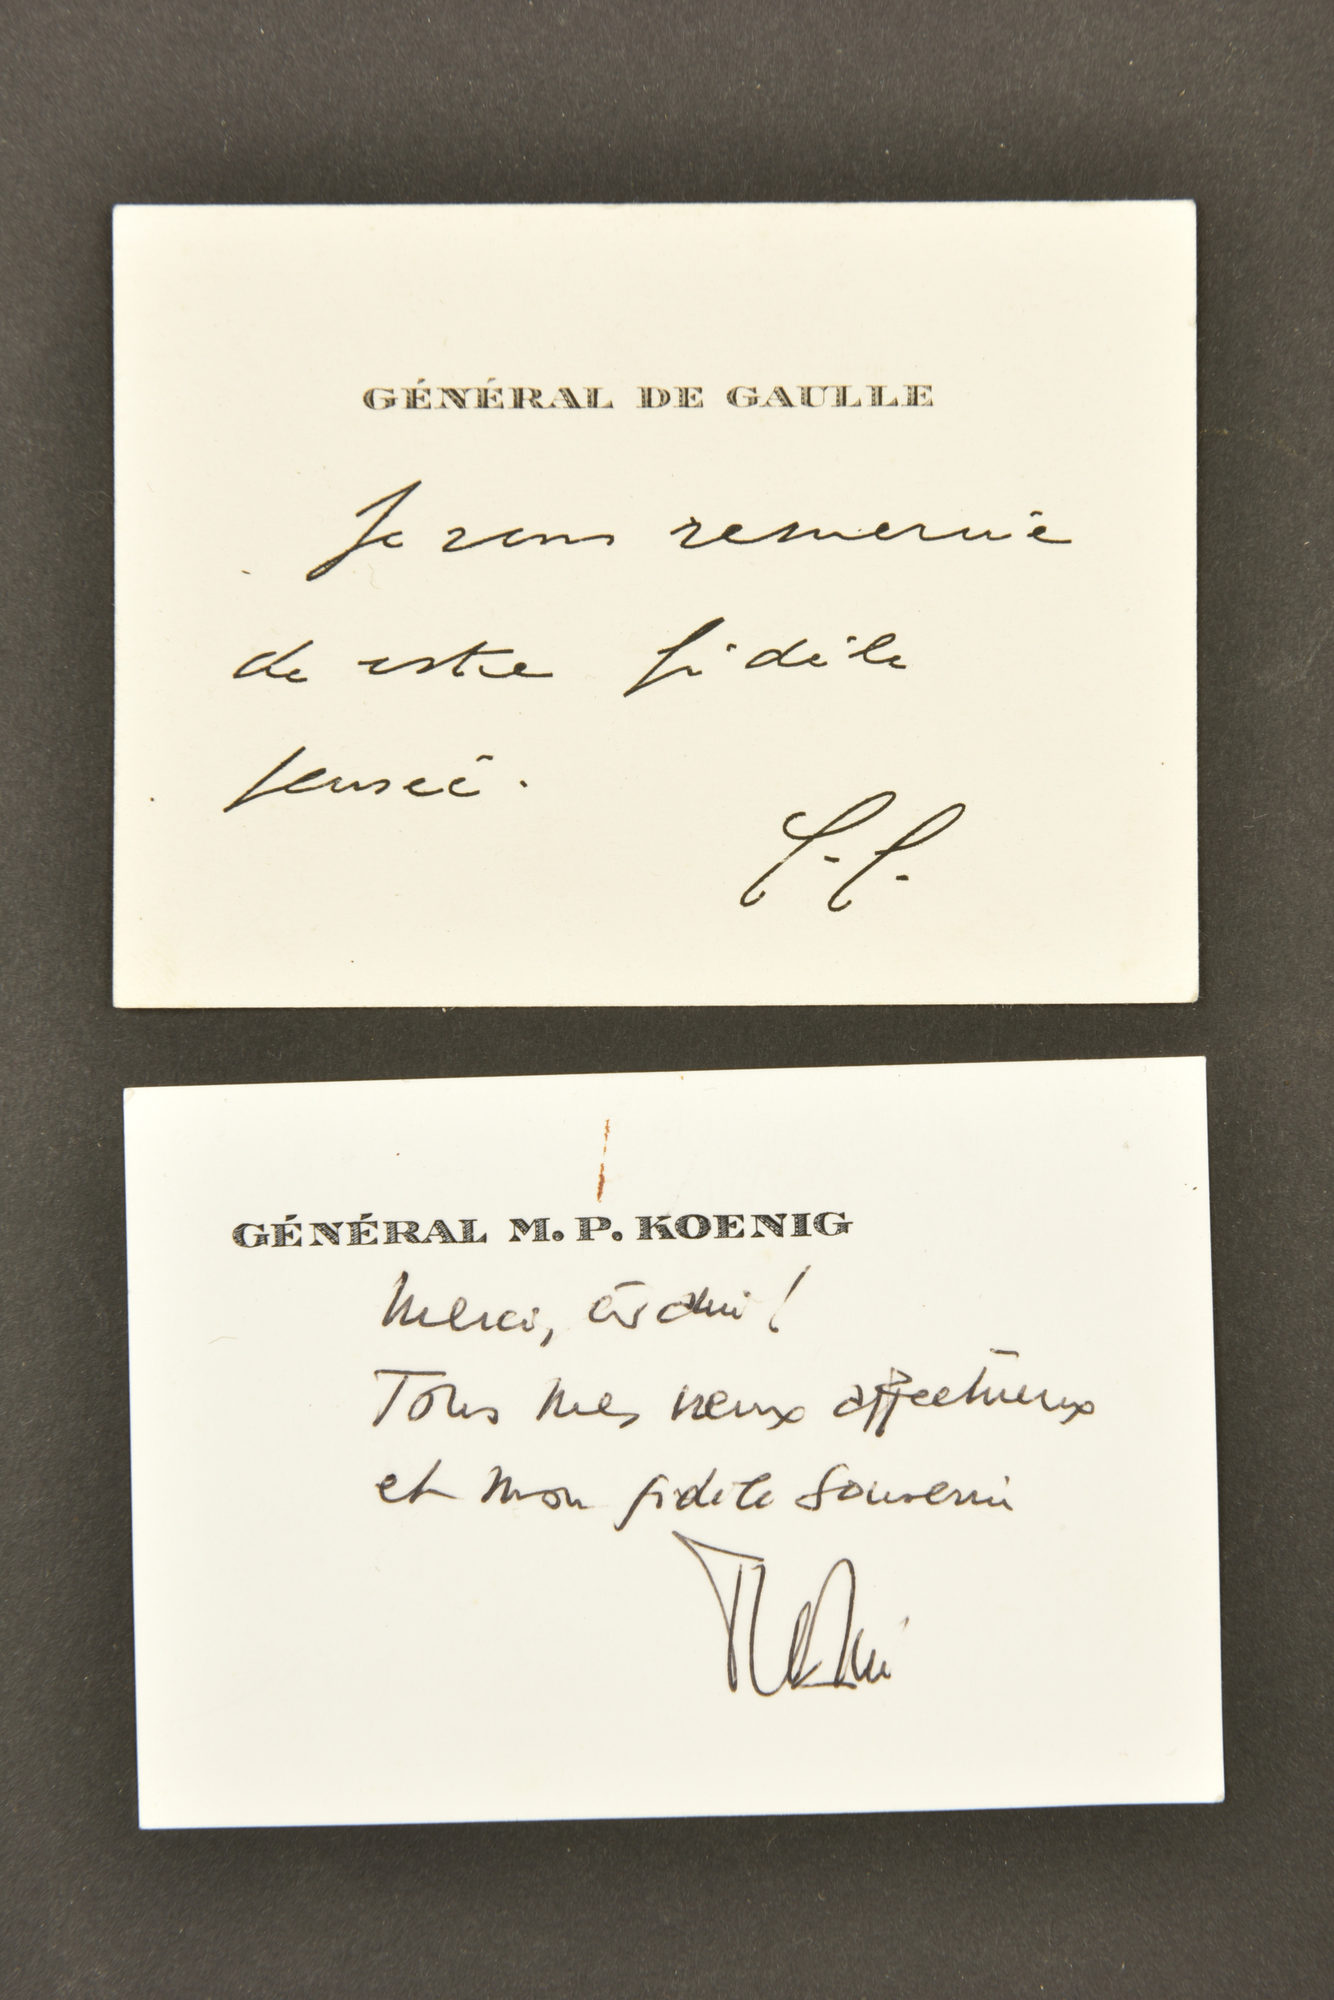 GÉNÉRAL DE GAULLE
Je vous remercie
de votre fidèle
pensée.
GÉNÉRAL M. P. KOENIG
Merci, ami!
Tous mes vœux affectueux
et mon fidèle souvenir